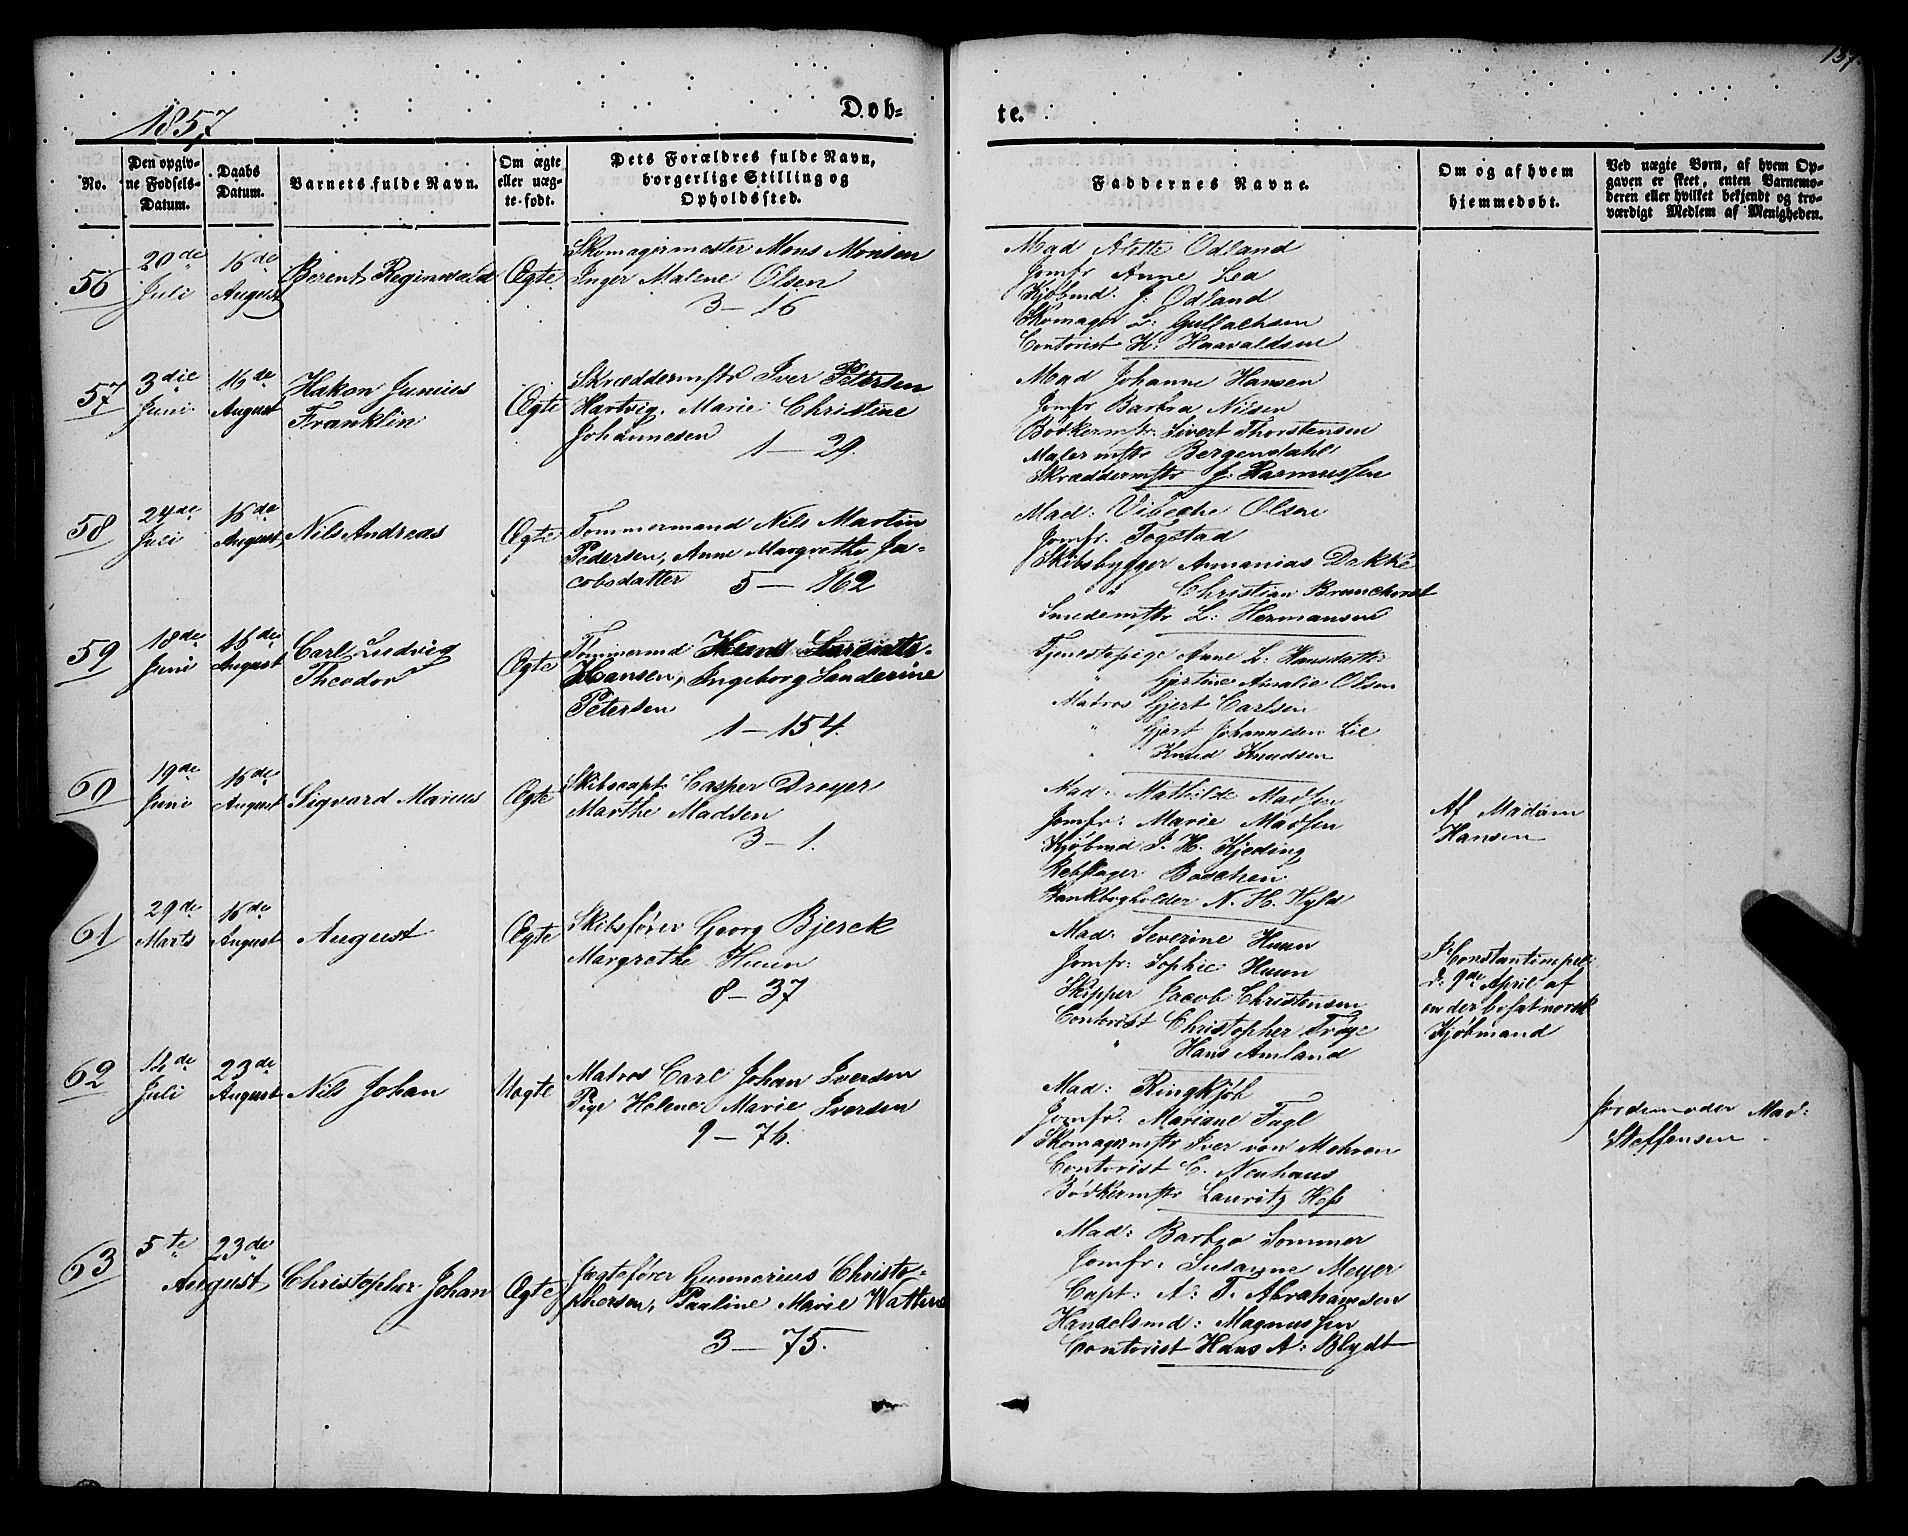 187.
1857
Døb-
te.
No.
Den opgiv-
ne Fødsels-
Datum.
Daabs
Datum.
Barnets fulde Navn.
Om ægte
eller uæg-
te-født.
Dets Forældres fulde Navn,
borgerlige Stilling og
Opholdssted.
Faddernes Navne.
Om og af hvem
hjemmedøbt.
Ved uægte Børn, af hvem Op-
gaven er skeet, enten Barnemo-
deren eller hvilket bekjendt og tro-
værdigt Medlem af Menigheden.
56
20de
Juli
16de
August
Berent Reginwald
Ægte
Skomagermester Mons Monsen
Inger Malene Olsen
3 — 16
Mad Odland
Jomfr Anne Lea
Kjøbmd. J. Odland
Skomager L: Gullachsen
Contorist K: Haavaldsen
57
3die
Juni
16de
August
Hakon Junius
Franklin
Ægte
Skræddermstr Iver Petersen
Hartvig, Marie Christine
Johannesen
1 — 29.
Mad Johanne Hansen
Jomfr Barbra Nilsen
Bødkermstr. Sivert Thorstensen
Malermstr Bergendahl
Skræddermstr J. Rasmussen
58
24de
Juli
16de
August
Nils Andreas
Ægte
Tømmermand Nils Martin
Pedersen, Anne Margrethe Ja-
cobsdatter 5 — 162
Mad: Vibeche Olsen
Jomfr. Togstad
Skibsbygger Annanias Dekke
" Christian Brunchorst
Smedemstr L: Hermansen
59
18de
Juni
16de
August
Carl Ludvig
Theodor
Ægte
Tømmermd
Hansen, Ingeborg Sanderine
Petersen
1 — 154.
Tjenestepige Anne L: Hansdatter
" Gjertine Amalie Olsen
Matros Gjert Carlsen
" Gjert Johannesen Lie
" Knud Knudsen
60
19de
Juni
16de
August
Sigvard Marius
Ægte
Skibscapt. Casper Dreyer
Marthe Madsen
3 — 1.
Mad: Mathilde Madsen
Jomfr: Marie Madsen
Kjøbmd J. H. Kjeding
Rebslager Boschen
Bankbogholder N. H. Hyld
Af Madam
Hansen
61
29de
Marts
16de
August
August
Ægte
Skibsfører Georg Bjerck
Margrethe Huun
8 — 37
Mad: Severine Huun
Jomfr: Sophie Huun
Skipper Jacob Christensen
Contorist Christopher Troye
" Hans Amland
I Constantinopel
d. 9de April af
en der bosat norsk
Kjøbmand
62
14de
Juli
23de
August
Nils Johan
Uægte
Matros Carl Johan Iversen
Pige Helene Marie Iversen
9 — 76.
Mad: Ringkjøb
Jomfr. Mariane Fugl
Skomagermstr Iver von Mehren
Contorist C. Neuhaus
Bødkermstr Lauritz Hess
Jordemoder Mad:
Steffensen.
63
5te
August
23de
Christopher Johan
Ægte
Jægtefører Gunnerius Christo-
phersen, Pauline Marie Watterne
3 — 75.
Mad: Barbra Sommer
Jomfr: Susanne Meyer
Capt: A: T. Abrahamsen
Handelsmd: Magnussen
Contorist Hans A: Blydt